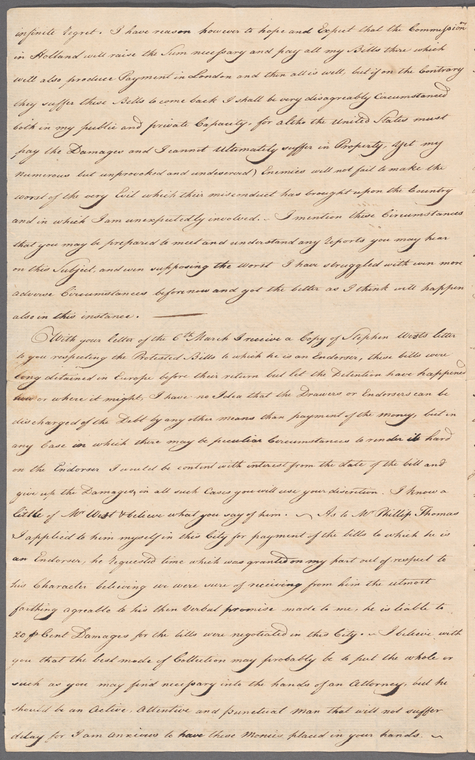 infinite regret. I have reason however to hope and Expect that the Commission
in Holland will raise the Sum necessary and pay all my Bills there which
will also produce Payment in London and then all is well, but if on the Contrary
they suffer these Bills to come back I shall be very disagreably Circumstanced
both in my public and private Capacity. for altho the United States must
pay the Damages and I cannot Ultimately suffer in Property, yet my
numerous but unprovoked and undeserved) Enemies will not fail to make the
worst of the very Evil which their misconduct has brought upon the Country
and in which I am unexpectedly involved.. I mention these Circumstances
that you may be prepared to meet and understand any reports you may hear
on this Subject, and even supposing the worst I have struggled with even more
adverse Circumstances before now and got the better as I think will happen
also in this instance.
With your letter of the 6th March I receive a Copy of Stephen Wests letter
to you respecting the Protested Bills to which he is an Endorser, these bills were
long detained in Europe before their return but let the Detention have happened
how or where it might, I have no Idea that the Drawers or Endorsers can be
discharged of the Debt by any other means than payment of the money, but in
any Case in which there may be peculiar Circumstances to render it hard
on the Endorser I would be content with interest from the date of the bill and
give up the Damages, in all such Cases you will use your discretion. I know a
little of Mr West & believe what you say of him. As to Mr Phillip Thomas
I applied to him myself in this City for payment of the bills to which he is
an Endorser, he requested time which was granted on my part out of respect to
his Character believing we were sure of receiving from him the utmost
farthing agreable to his then Verbal promise made to me, he is liable to
20 ⅌ Cent Damages for the bills were negotiated in this City. I believe with
you that the best mode of Collection may probably be to put the whole or
such as you may find necessary into the hands of an Attorney, but he
should be an Active, Attentive and punctual Man that will not suffer
delay for I am anxious to have these Monies placed in your hands.